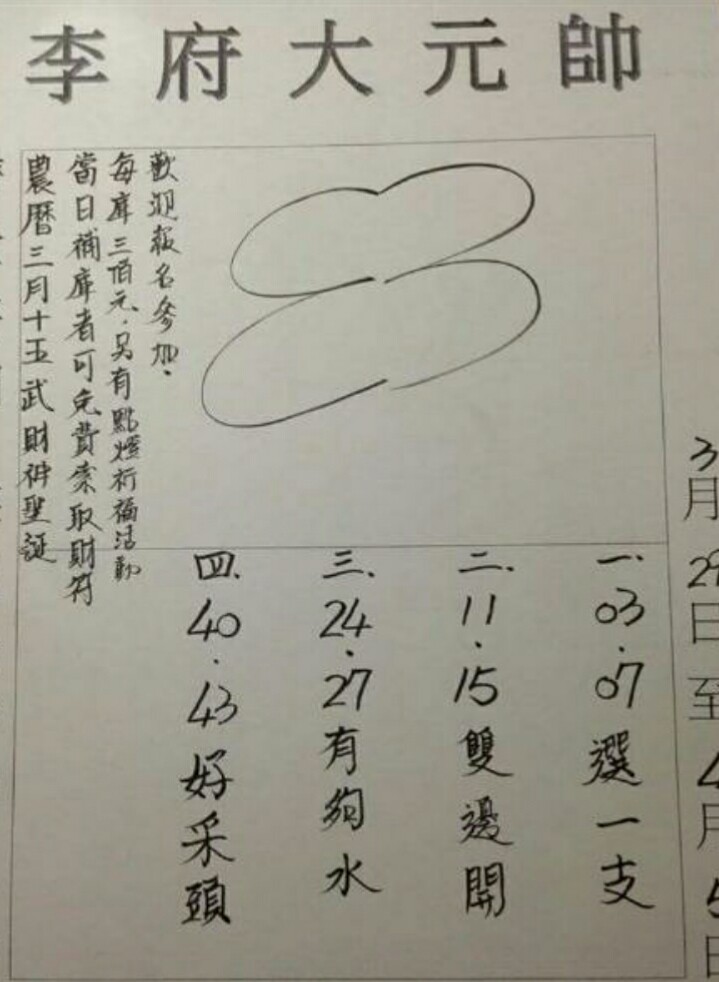 李府大元帥
3月29日至4月5日
一.03.07選一支
二.11.15雙邊開
三.24.27有夠水
四.40.43好采頭
歡迎報名參加.
每庫三佰元.另有點燈祈福活動
當日補庫者可免費索取財符
農曆三月十五武財神聖誕